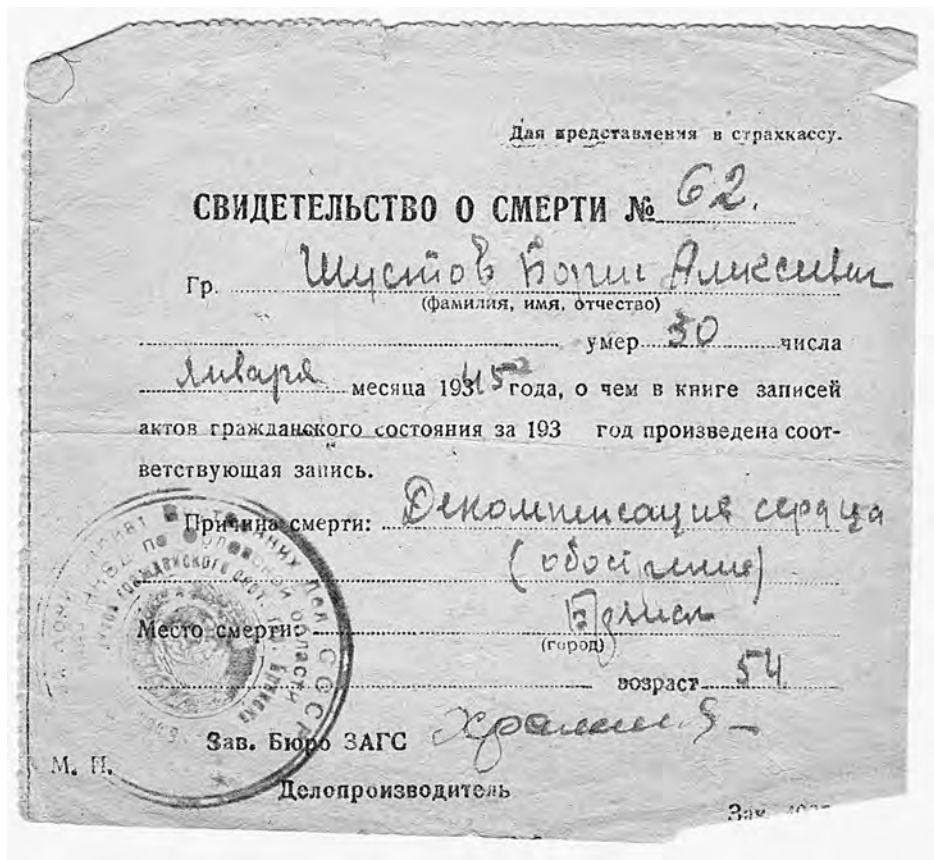 Для представления в страхкассу.
СВИДЕТЕЛЬСТВО О СМЕРТИ № 62.
Гр. Шустов Алексеевич
(фамилия, имя, отчество)
умер 30 числа
Января месяца 1945 года, о чем в книге записей
актов гражданского состояния за 193 год произведена соот-
ветствующая запись.
Причина смерти: Декомпенсация сердца
(обострение)
Место смерти:
(город)
возраст 54
Зав. Бюро ЗАГС
М. П.
Делопроизводитель
Зак.